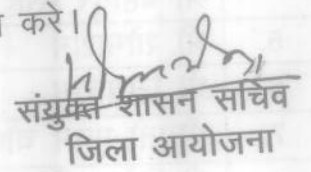 करे।
संयुक्त शासन सचिव
जिला आयोजना